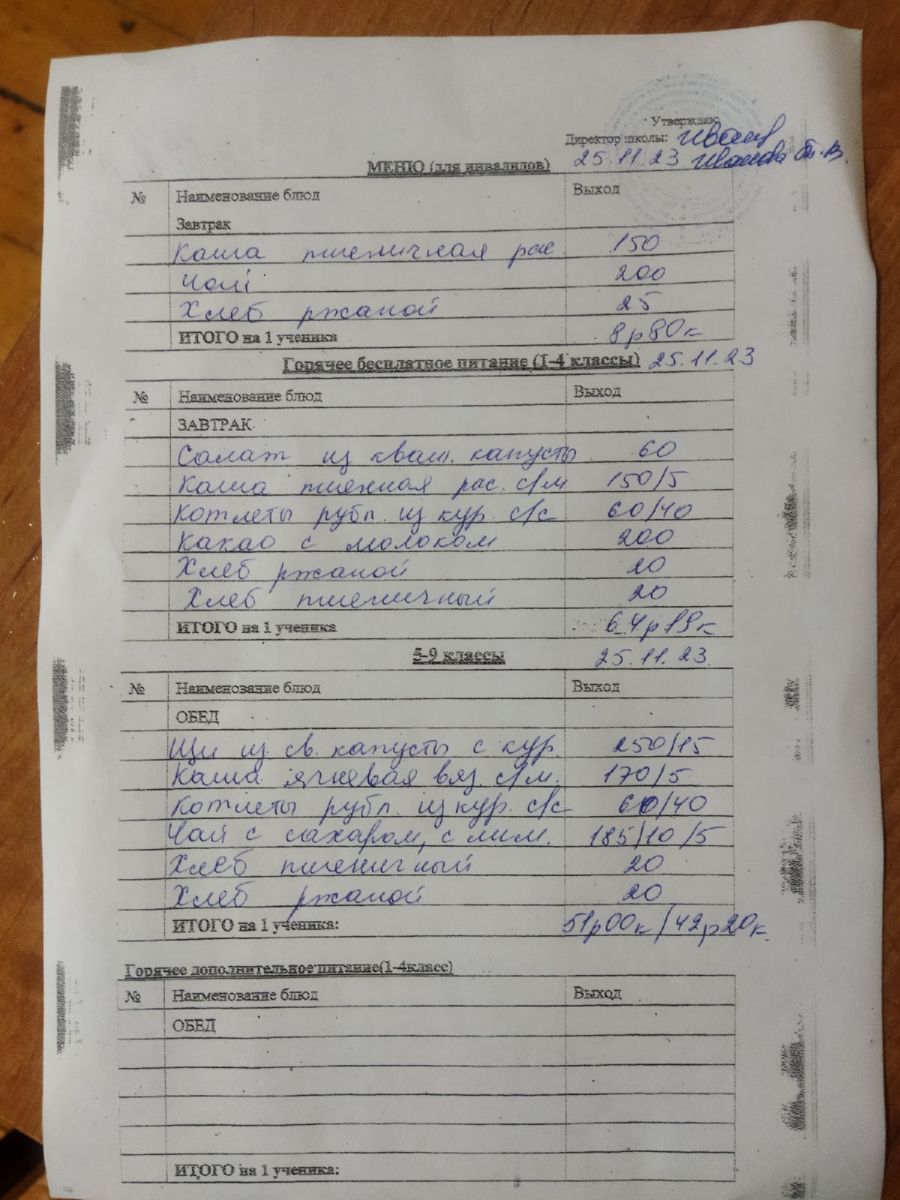 Утверждаю
Директор школы:
МЕНЮ (для инвалидов) 25.11.23 Иванова
№ Наименование блюд Выход
Завтрак
Каша пшеничная рас 150
Чай 200
Хлеб ржаной 25
ИТОГО на 1 ученика 8р80к
Горячее бесплатное питание (1-4 классы) 25.11.23
№ Наименование блюд Выход
ЗАВТРАК
Салат из кваш. капусты 60
Каша пшенная рас. с/м 150/5
Котлеты рубл. из кур. с/с 60/40
Какао с молоком 200
Хлеб ржаной 20
Хлеб пшеничный 20
ИТОГО на 1 ученика 64р19к
5-9 классы 25.11.23
№ Наименование блюд Выход
ОБЕД
Щи из св. капусты с кур. 250/15
Каша ячневая вяз. с/м. 170/5
Котлеты рубл. из кур. с/с 60/40
Чай с сахаром, с лим. 185/10/5
Хлеб пшеничный 20
Хлеб ржаной 20
ИТОГО на 1 ученика: 51р00к/42р20к.
Горячее дополнительное питание(1-4класс)
№ Наименование блюд Выход
ОБЕД
ИТОГО на 1 ученика: